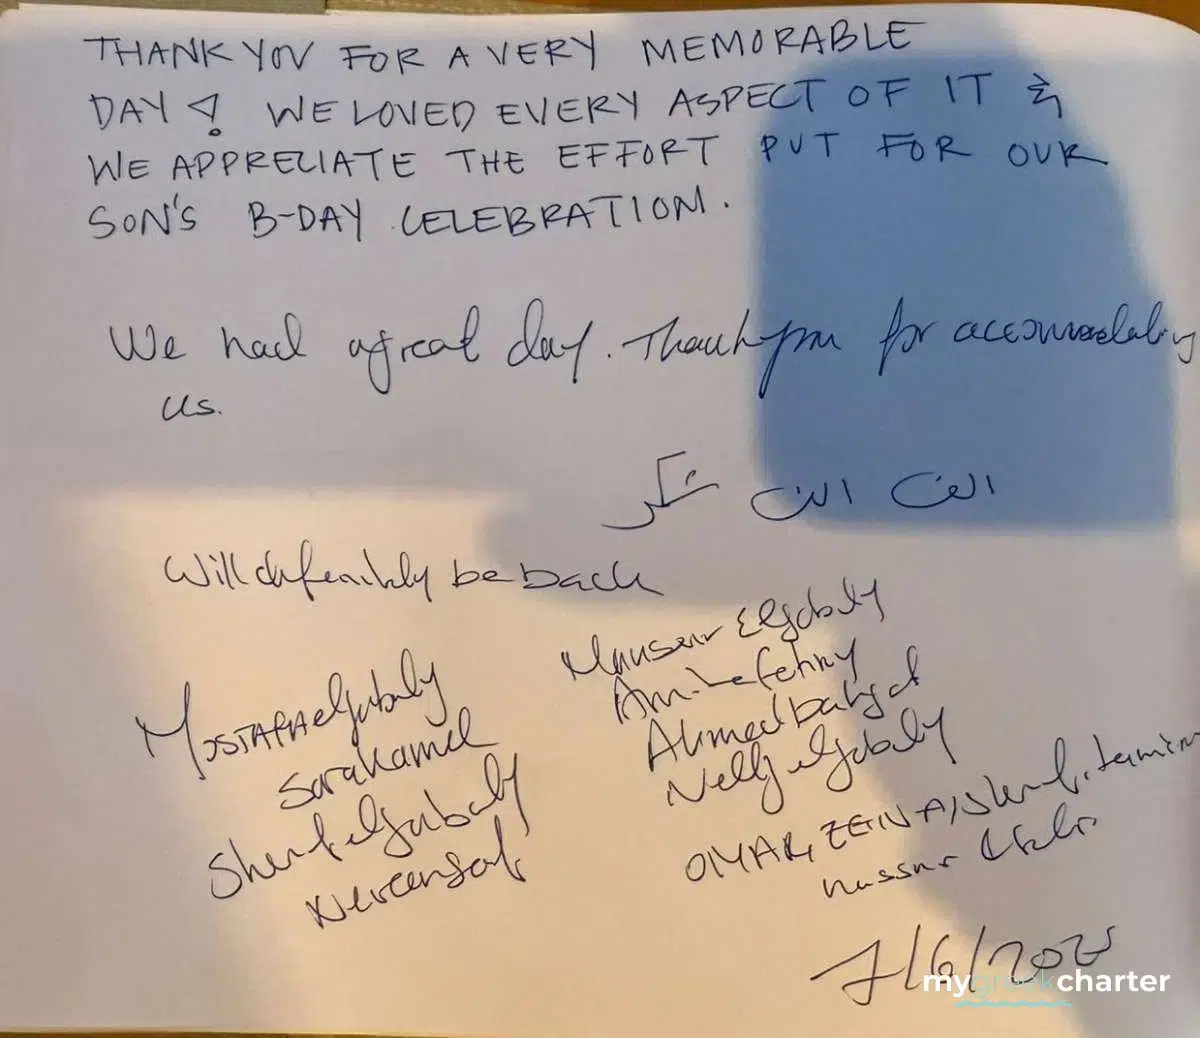 THANK YOU FOR A VERY MEMORABLE
DAY! WE LOVED EVERY ASPECT OF IT &
WE APPRECIATE THE EFFORT PUT FOR OUR
SON'S B-DAY CELEBRATION.
We had a great day. Thank you for accommodating
us.
الف الف شكر
Will definitely be back
Mansour Elgabaly
Amina fahmy
Ahmed bahgat
Nelly elgabaly
MOSTAFA elgabaly
Sara Kamel
Sherif elgabaly
Neveen
OMAR, ZEINA,
7/6/2025
mygreekcharter